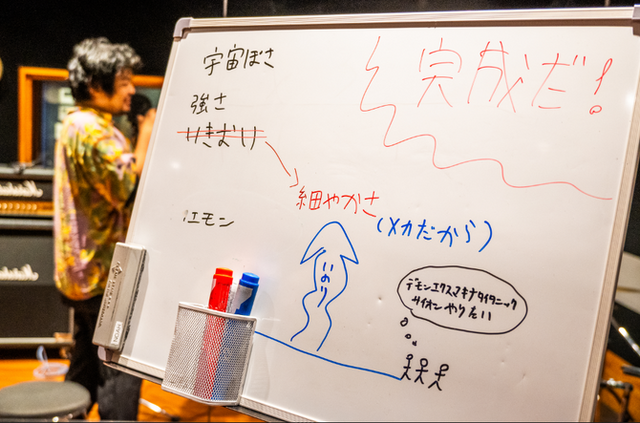 宇宙ぽさ
完成だ!
強さ
いきおい
細やかさ
(メカだから)
エモン
いのり
デモンエクスマキナタイタニック
サイオンやりたい